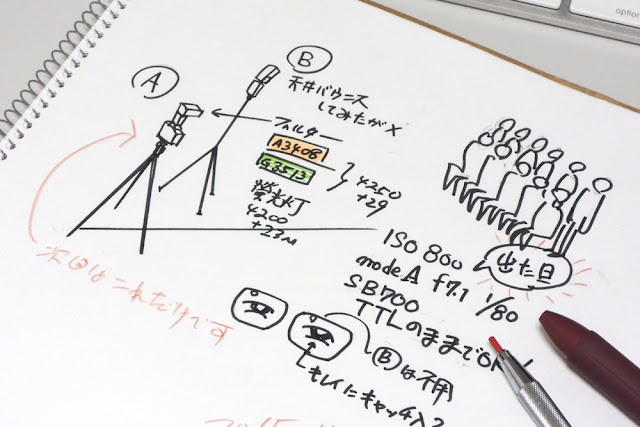 A
B
天井バウンス
してみたが×
フィルター
A3408
G3513
4250
+29
蛍光灯
4200
+23M
ISO 800
mode A f7.1 1/80
SB700
TTLのままでOK
出た目
次回はこれだけです
Bは不用
キレイにキャッチ入る
option